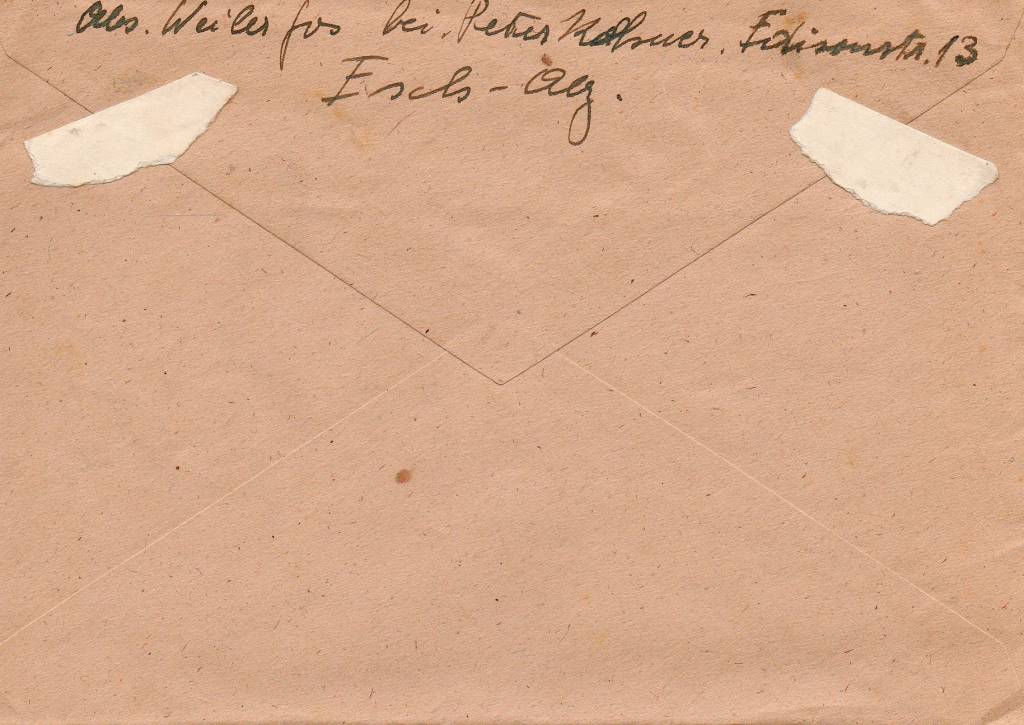 Abs. Weiler Jos bei. Peter Kolsuer. Edisonstr. 13
Esch-Alz.